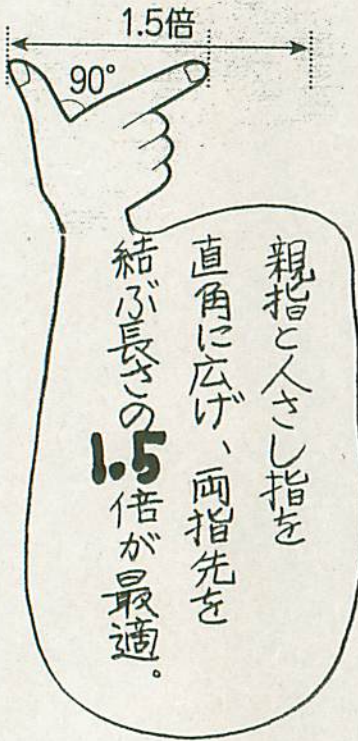 1.5倍
90°
親指と人さし指を
直角に広げ、両指先を
結ぶ長さの1.5倍が最適。